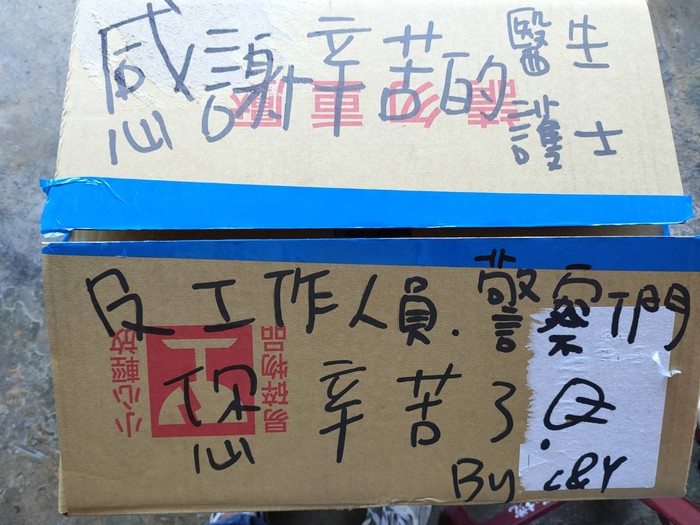 感謝辛苦的醫生
護士
請勿重壓
及工作人員.警察們
小心輕放
易碎物品
您辛苦了Q.
By C&Y